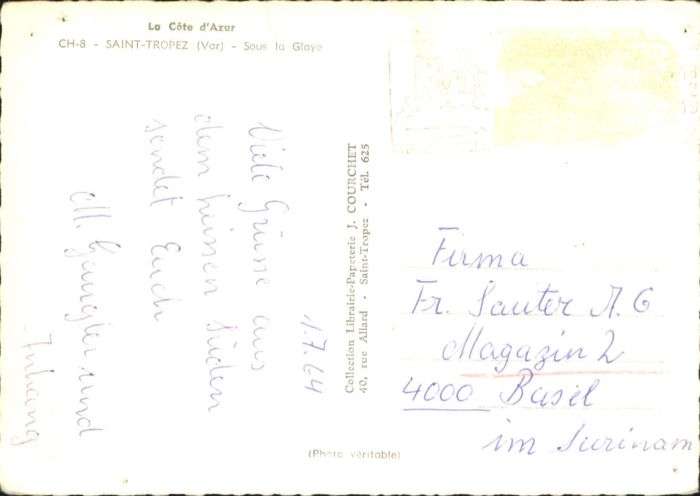 La Côte d'Azur
CH-8 - SAINT-TROPEZ (Var) - Sous la Glaye
1.7.64
Viele Grüsse aus
dem heissen Süden
sendet Euch
M. Gangler und
Anhang
Collection Librairie-Papeterie J. COURCHET
40, rue Allard - Saint-Tropez - Tél. 625
Firma
Fr. Sauter A.G
Magazin 2
4000 Basel
im Surinam
(Photo véritable)